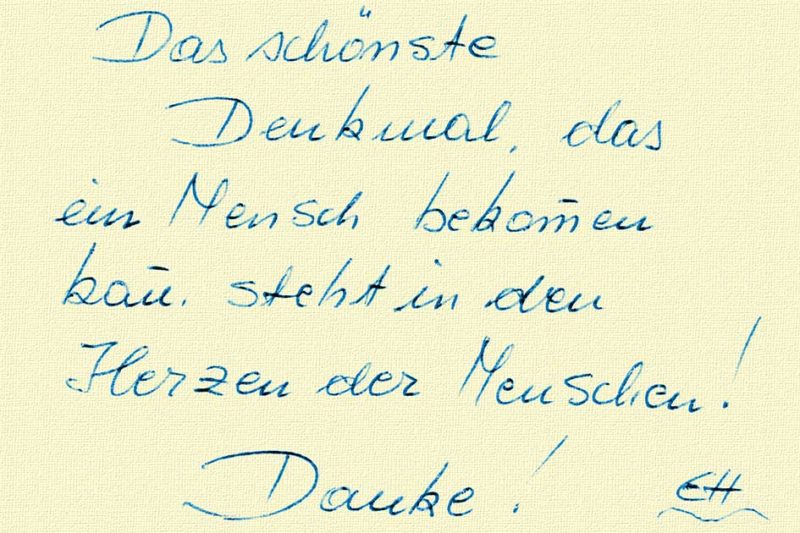 Das schönste
Denkmal, das
ein Mensch bekom̄en
kan̄, steht in den
Herzen der Menschen!
Danke!
EH